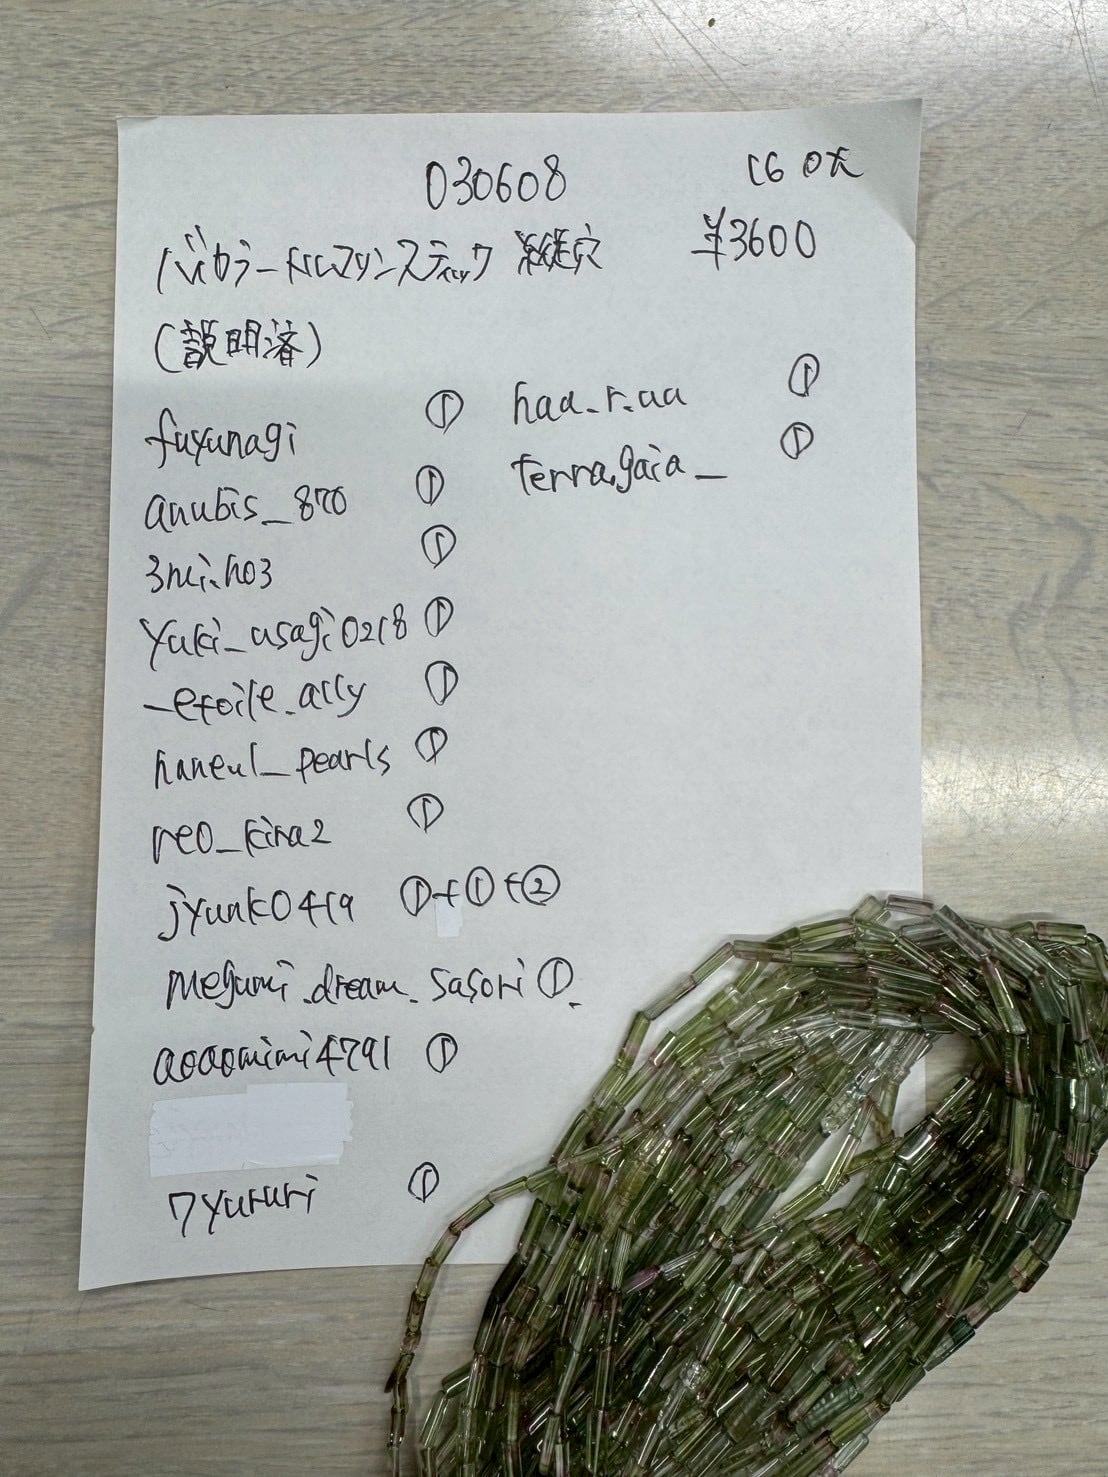 030608
16 0大
バイカラートルマリンスティック 縦穴 ¥3600
(説明済)
fuyunagi ①
anubis_870 ①
3mi.ho3 ①
yuki_usagi0218 ①
_etoile.ally ①
haneul_pearls ①
reo_kira2 ①
jyunk0419 ①+①+②
megumi.dream.sasori ①
aoaomimi4791 ①
7yururi ①
haa.r.aa ①
terra.gaia_ ①